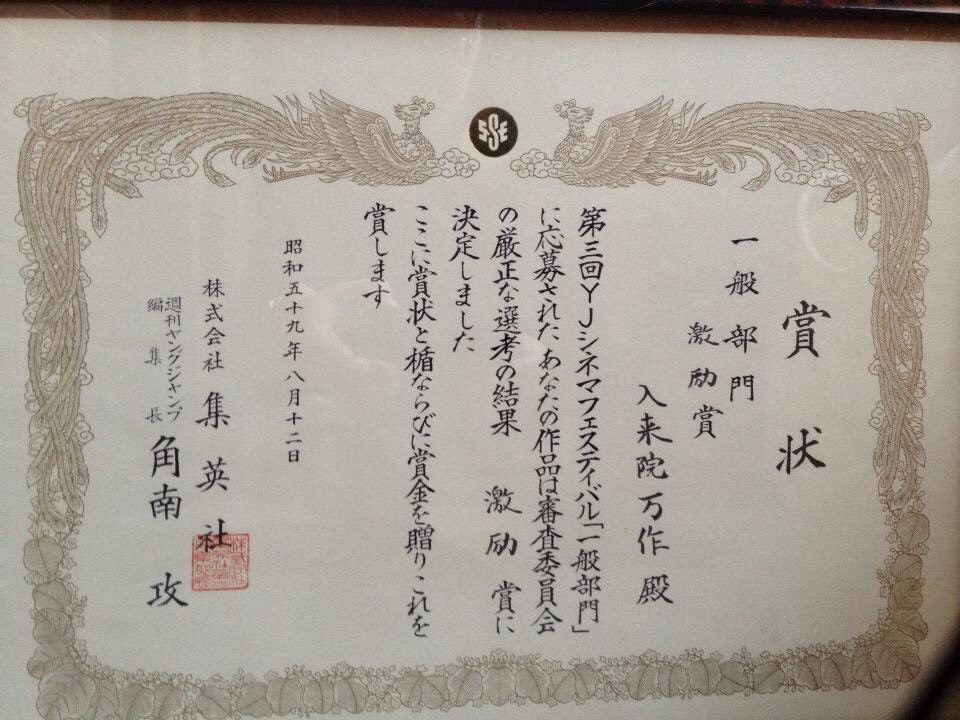 賞状
一般部門
激励賞
入来院万作殿
第三回YJシネマフェスティバル「一般部門」
に応募されたあなたの作品は審査委員会
の厳正な選考の結果 激励賞に
決定しました
ここに賞状と楯ならびに賞金を贈りこれを
賞します
昭和五十九年八月十二日
株式会社 集英社
週刊ヤングジャンプ
編集長
角南 攻
SSE